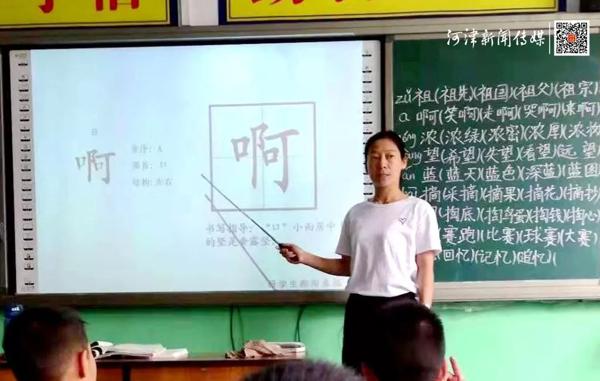 河津新闻传媒
啊
音序：A
部首：口
结构：左右
啊
书写指导：“口”小而居中
的竖是垂露竖
zǔ祖(祖先)(祖国)(祖父)(祖宗)
a 啊(笑啊)(走啊)(哭啊)(来啊)
浓(浓绿)(浓密)(浓厚)(浓
望(希望)(失望)(看望)(远望)
蓝(蓝天)(蓝色)(深蓝)(蓝图)
摘(采摘)(摘果)(摘花)(摘抄)
(掏底)(掏鸟蛋)(掏钱)(掏心
赛跑)(比赛)(球赛)(大赛)
回忆)(记忆)(追忆)(